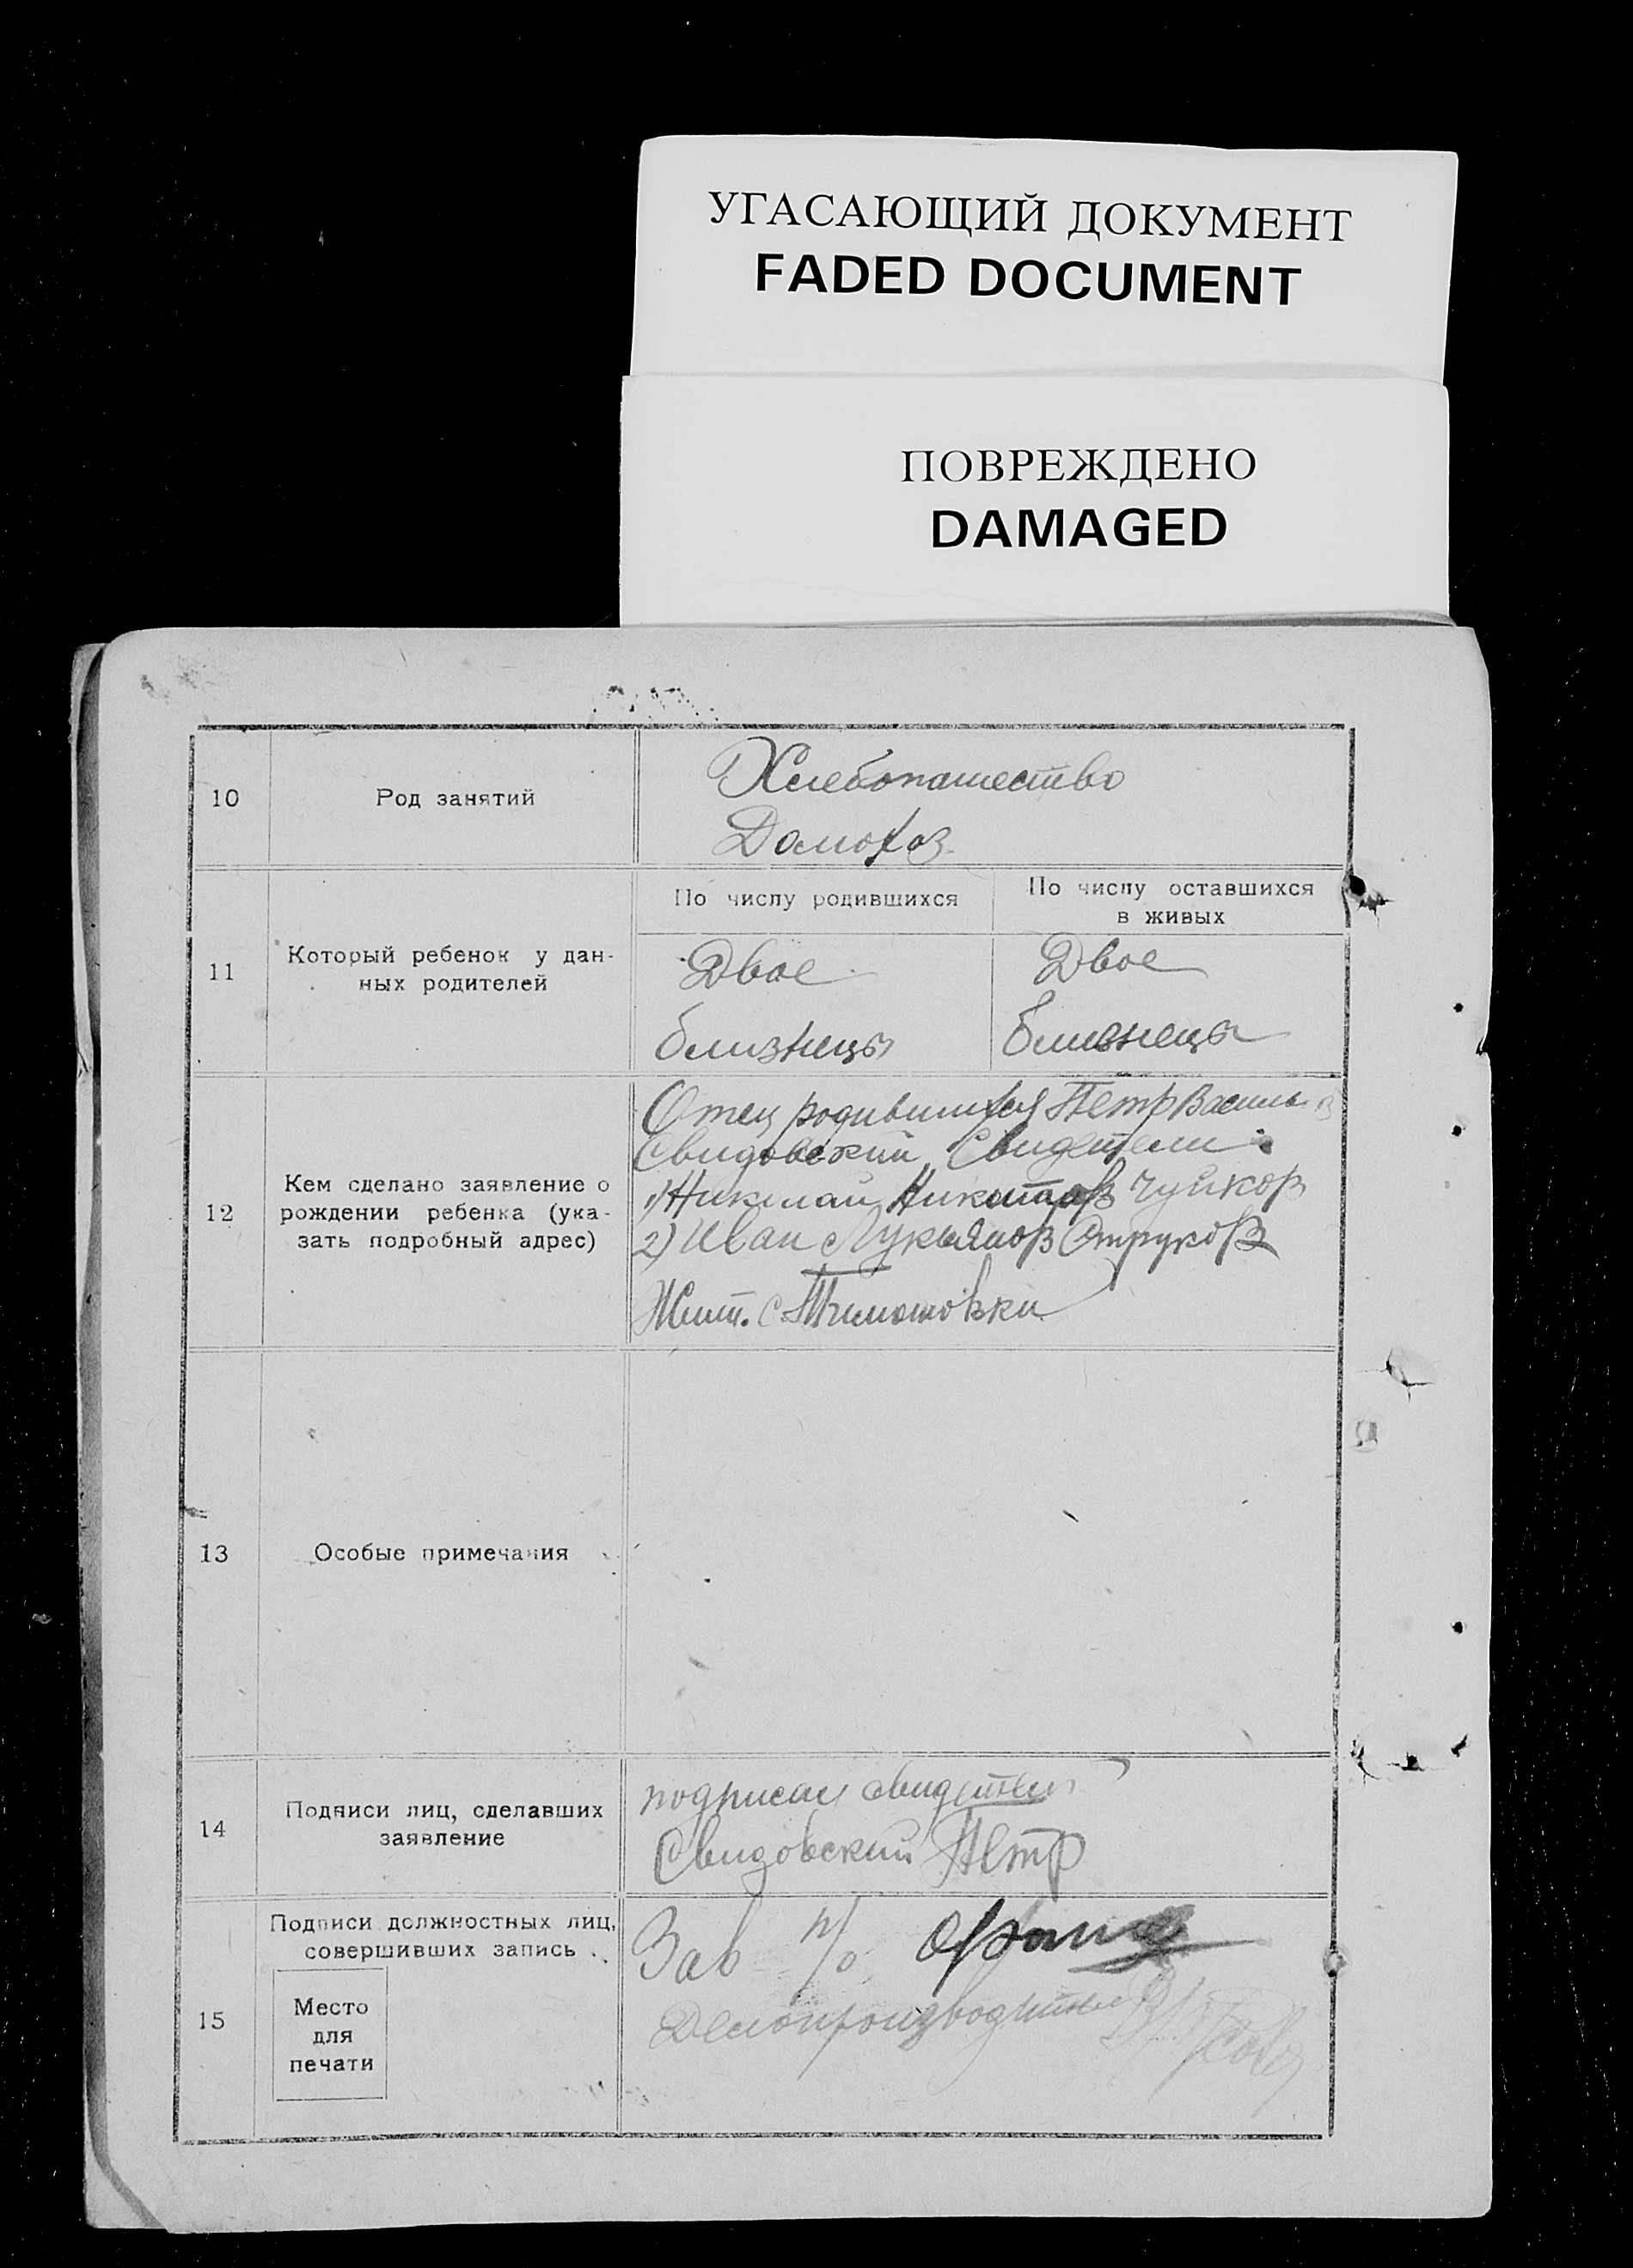 УГАСАЮЩИЙ ДОКУМЕНТ
FADED DOCUMENT
ПОВРЕЖДЕНО
DAMAGED
10
Род занятий
Хлебопашество
Домохоз
11
Который ребенок у дан-
ных родителей
По числу родившихся
Двое
близнецы
По числу оставшихся
в живых
Двое
близнецы
12
Кем сделано заявление о
рождении ребенка (ука-
зать подробный адрес)
Отец родившихся Петр Василь
Свидовский Свидетели:
1) Николай Чуйков
2) Иван Лукьянов Струков
Жит. с Тимошовки
13
Особые примечания
14
Подписи лиц, сделавших
заявление
Свидовский Петр
15
Подписи должностных лиц,
совершивших запись
Место
для
печати
Зав п/о
Делопроизводитель